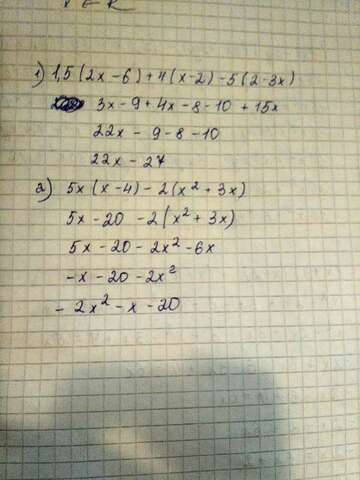 x ∈ R
1) 1,5(2x-6)+4(x-2)-5(2-3x)
3x-9+4x-8-10+15x
22x-9-8-10
22x-27
2) 5x(x-4)-2(x²+3x)
5x-20-2(x²+3x)
5x-20-2x²-6x
-x-20-2x²
-2x²-x-20